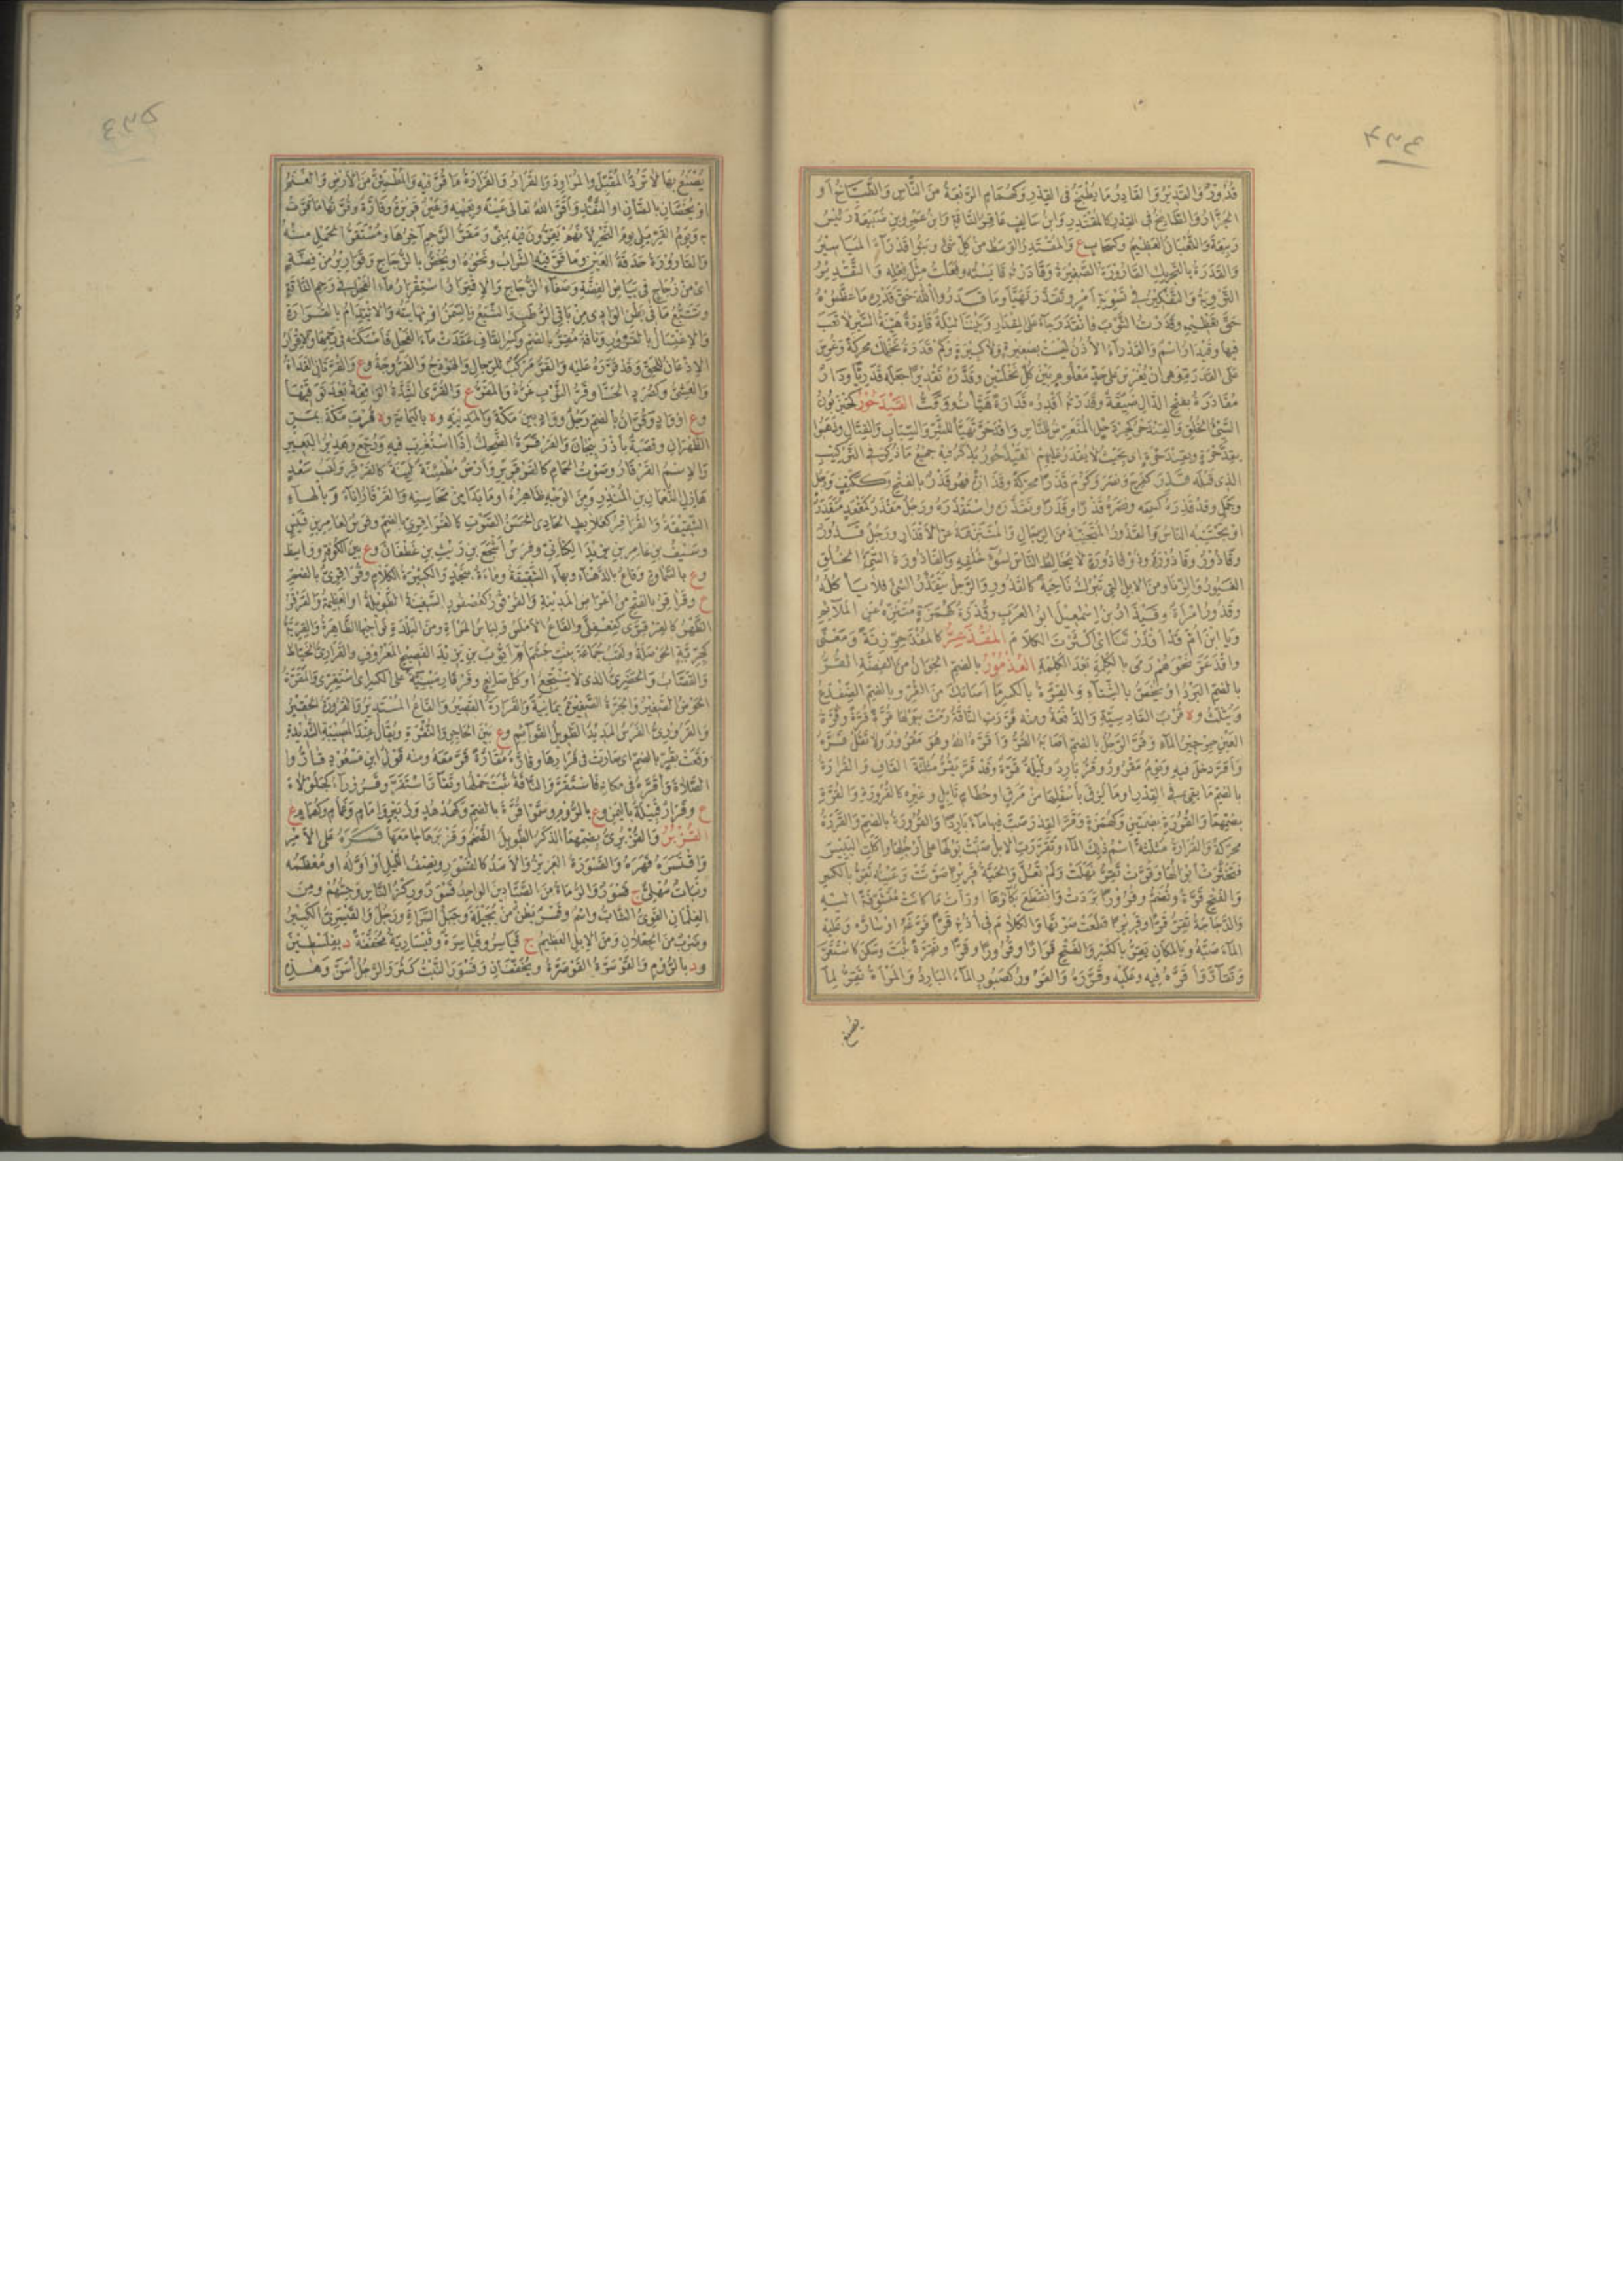 قُدُورٌ وَالقَدِيرُ وَالقَادِرُ مَا يُطْبَخُ فى القِدْرِ وَكَهُمَامٍ الرَّبْعَةُ مِنَ النَّاسِ وَالطَّبَّاخُ أَو
الجَزَّارُ وَالطَّابِخُ فى القِدْرِ كَالمُقْتَدِرِ وَابنُ سَالِفٍ عَاقِرُ النَّاقَةِ وَابنُ عَمْرِو بنِ ضُبَيْعَةَ رَئِيسُ
رَبِيعَةَ وَالثُّعْبَانُ العَظِيمُ وكسَحَابٍ ع وَالمُقْتَدِرُ الوَسَطُ مِنْ كُلِّ شَىْءٍ وَبَنُو قَدْرَاءَ المَيَاسِيرُ
وَالقَدَرَةُ بِالتَّحْرِيكِ القَارُورَةُ الصَّغِيرَةُ وَقَادَرْتُهُ قَايَسْتُهُ وَفَعَلْتُ مِثْلَ فِعْلِهِ وَالتَّقْدِيرُ
التَّرْوِيَةُ وَالتَّفْكِيرُ فى تَسْوِيَةِ أَمْرٍ وتَقَدَّرَ تَهَيَّأَ وَمَا قَدَرُوا اللهَ حَقَّ قَدْرِهِ مَا عَظَّمُوهُ
حَقَّ تَعْظِيمِهِ وقَدَرْتُ الثَّوْبَ فَانْقَدَرَ جَاءَ عَلَى المِقْدَارِ وَبَيْنَنَا لَيْلَةٌ قَادِرَةٌ هَيِّنَةُ السَّيْرِ لَا تَعَبَ
فِيهَا وقَيْدَارٌ اسْمٌ وَالقَدْرَاءُ الأُذُنُ لَيْسَتْ بِصَغِيرَةٍ وَلَا كَبِيرَةٍ وَكَمْ قَدَرَةُ نَخْلِكَ مُحَرَّكَةً وَغُرِسَ
عَلَى القَدَرَةِ وَهِىَ أَنْ يُغْرَسَ عَلَى حَدٍّ مَعْلُومٍ بَيْنَ كُلِّ نَخْلَتَيْنِ وقَدَّرَهُ تَقْدِيرًا جَعَلَهُ قَدَرِيًّا وَدَارٌ
مُقَادَرَةٌ بِفَتْحِ الدَّالِ ضَيِّقَةٌ وقَدَرْتُهُ أَقْدِرُهُ قَدَارَةً هَيَّأْتُ وَوَقَّتُّ القَيْذَحُورُ كَحَيْزَبُونٍ
السَّيِّئُ الخُلُقِ وَالقِنْذَحْرُ كَجِرْدَحْلٍ المُتَعَرِّضُ لِلنَّاسِ وَاقْذَحَرَّ تَهَيَّأَ لِلشَّرِّ وَالسِّبَابِ وَالقِتَالِ وذَهَبُوا
بِقِذَّحْرَةٍ وبقِنْذَحْرَةٍ أى بِحَيْثُ لَا يُقْدَرُ عَلَيْهِمْ القَيْدَحُورُ يُذْكَرُ فِيهِ جَمِيعُ مَا ذُكِرَ فى التَّرْكِيبِ
الذى قَبْلَهُ قَذِرَ كَفَرِحَ وَنَصَرَ وَكَرُمَ قَذَرًا مُحَرَّكَةً وَقَذَارَةً فَهُوَ قَذْرٌ بِالفَتْحِ وَكَكَتِفٍ وَرَجُلٍ
وجَمَلٍ وقَدْ قَذِرَهُ كَسَمِعَهُ ونَصَرَهُ قَذْرًا وقَذَرًا وتَقَذَّرَهُ واسْتَقْذَرَهُ ورَجُلٌ مَقْذَرٌ كَمَقْعَدٍ مُتَقَذَّرٌ
اوْ يَجْتَنِبُهُ النَّاسُ وَالقَذُورُ المُتَنَحِّيَةُ مِنَ الرِّجَالِ وَالمُتَنَزِّهَةُ عَنِ الأَقْذَارِ ورَجُلٌ قَذُورٌ
وقَاذُورٌ وقَاذُورَةٌ وذُو قَاذُورَةٍ لَا يُخَالِطُ النَّاسَ لِسُوءِ خُلُقِهِ وَالقَاذُورَةُ السَّيِّئُ الخُلُقِ
الغَيُورُ وَالزِّنَا ومِنَ الإِبِلِ الَّتِى تَبْرُكُ نَاحِيَةً كَالقَذُورِ وَالرَّجُلُ يَتَقَذَّرُ الشَّىْءَ فَلَا يَأْكُلُهُ
وقَذُورُ امْرَأَةٌ وقَيْذَارُ بنُ اسْمٰعِيلَ ابو العَرَبِ وقُذَرَةٌ كَهُمَزَةٍ مُتَنَزِّهٌ عَنِ المَلَائِمِ
وَيَا ابنَ أُمِّ قَدْ أَقْذَرْتَنَا أى أَكْثَرْتَ الكَلَامَ المُقْذَعِرُّ كَالمُقْذَحِرِّ زِنَةً وَمَعْنًى
واقْذَعَرَّ نَحْوَهُمْ رَمَى بِالكَلِمَةِ بَعْدَ الكَلِمَةِ القُذْمُورُ بِالضَّمِّ الخِوَانُ مِنَ الفِضَّةِ القُرُّ
بِالضَّمِّ البَرْدُ اوْ يُخَصُّ بِالشِّتَاءِ وَالقِرَّةُ بِالكَسْرِ مَا أَصَابَكَ مِنَ القُرِّ وبِالضَّمِّ الضِّفْدَعُ
وَيُثَلَّثُ وة قُرْبَ القَادِسِيَّةِ وَالدُّفْعَةُ ومِنْهُ قَرَّرَتِ النَّاقَةُ رَمَتْ بِبَوْلِهَا قُرَّةً قُرَّةً وقُرَّةُ
العَيْنِ جِرْجِيرُ المَاءِ وقُرَّ الرَّجُلُ بِالضَّمِّ أَصَابَهُ القُرُّ وَأَقَرَّهُ اللهُ وهُوَ مَقْرُورٌ وَلَا تَقُلْ قَرَّهُ
وَأَقَرَّ دَخَلَ فِيهِ وَيَوْمٌ مَقْرُورٌ وقَرٌّ بَارِدٌ وَلَيْلَةٌ قَرَّةٌ وقَدْ قَرَّ يَقُرُّ مُثَلَّثَةَ القَافِ وَالقُرَارَةُ
بِالضَّمِّ مَا بَقِىَ فى القِدْرِ اومَا لَزِقَ بِأَسْفَلِهَا مِنْ مَرَقٍ اوحُطَامِ تَابِلٍ وغَيْرِهِ كَالقُرُورَةِ وَالقُرَّةِ
بِضَمِّهِمَا وَالقُرُرَةِ بِضَمَّتَيْنِ وَكَهُمَزَةٍ وقَرَّ القِدْرَ صَبَّ فِيهَا مَاءً بَارِدًا وَالقُرُورَةُ بِالضَّمِّ وَالقَرَرَةُ
مُحَرَّكَةً وَالقَرَارَةُ مُثَلَّثَةً اسْمُ ذٰلِكَ المَاءِ وتَقَرَّرَتِ الإِبِلُ صَبَّتْ بَوْلَهَا عَلَى أَرْجُلِهَا وأَكَلَتِ اليَبِيسَ
فَتَخَثَّرَتْ أَبْوَالُهَا وقَرَّتْ تَقِرُّ نَهِلَتْ وَلَمْ تَعُلَّ وَالحَيَّةُ قَرِيرًا صَوَّتَتْ وَعَيْنُهُ تَقِرُّ بِالكَسْرِ
وَالفَتْحِ قَرَّةً وتُضَمُّ وقُرُورًا بَرَدَتْ وَانْقَطَعَ بُكَاؤُهَا اورَأَتْ مَا كَانَتْ مُتَشَوِّقَةً الَيْهِ
وَالدَّجَاجَةُ تَقِرُّ قَرًّا وقَرِيرًا قَطَعَتْ صَوْتَهَا وَالكَلَامَ فى أُذُنِهِ قَرًّا فَرَّغَهُ اوسَارَّهُ وَعَلَيْهِ
المَاءَ صَبَّهُ وبِالمَكَانِ يَقِرُّ بِالكَسْرِ وَالفَتْحِ قَرَارًا وقُرُورًا وقَرًّا وتَقِرَّةً ثَبَتَ وسَكَنَ كَاسْتَقَرَّ
وَتَقَارَّ وَأَقَرَّهُ فِيهِ وعَلَيْهِ وقَرَّرَهُ وَالقَرُورُ كَصَبُورٍ المَاءُ البَارِدُ وَالمَرْأَةُ تَقِرُّ لِمَا
يصنع
يُصْنَعُ بِهَا لَا تَرُدُّ المُقَبِّلَ والمُرَاوِدَ وَالقَرَارُ وَالقَرَارَةُ مَا قُرَّ فِيهِ وَالمُطْمَئِنُّ مِنَ الأَرْضِ وَالغَنَمُ
اوْ يُخَصَّانِ بِالضَّأْنِ اوِ النَّقَدِ وَأَقَرَّ اللهُ تَعَالَى عَيْنَهُ وبِعَيْنِهِ وعَيْنٌ قَرِيرَةٌ وقَارَّةٌ وقُرَّتُهَا مَا قَرَّتْ
بِهِ وَيَوْمُ القَرِّ يَلِى يَوْمَ النَّحْرِ لِأَنَّهُمْ يَقِرُّونَ فِيهِ بِمِنًى وَمَقَرُّ الرَّحِمِ آخِرُهَا ومُسْتَقَرُّ الحَمْلِ مِنْهُ
وَالقَارُورَةُ حَدَقَةُ العَيْنِ ومَا قَرَّ فِيهِ الشَّرَابُ ونَحْوُهُ اويُخَصُّ بِالزُّجَاجِ وقَوَارِيرُ مِنْ فِضَّةٍ
اى مِنْ زُجَاجٍ فى بَيَاضِ الفِضَّةِ وصَفَاءِ الزُّجَاجِ وَالإِقْتِرَارُ اسْتِقْرَارُ مَاءِ الفَحْلِ فى رَحِمِ النَّاقَةِ
وتَتَبُّعُ مَا فى بَطْنِ الوَادِى مِنْ بَاقِى الرُّطْبِ وَالشِّبَعُ وَالسِّمَنُ اوْ نِهَايَتُهُ وَالائْتِدَامُ بِالقُرَارَةِ
وَالإِغْتِسَالُ بِالقَرُورِ ونَاقَةٌ مُقِرٌّ بِالضَّمِّ وكَسْرِ القَافِ عَقَدَتْ مَاءَ الفَحْلِ فَأَمْسَكَتْهُ فى رَحِمِهَا وَالإِقْرَارُ
الإِذْعَانُ لِلْحَقِّ وقَدْ قَرَّرَهُ عَلَيْهِ وَالقَرُّ مَرْكَبٌ لِلرِّجَالِ وَالهَوْدَجُ وَالفَرُّوجَةُ وع وَالقَرَّتَانِ الغَدَاةُ
وَالعَشِىُّ وكَصُرَدٍ الحَسَا وقَرُّ الثَّوْبِ غَرُّهُ وَالمَقَرُّ ع وَالقُرَّى الشِّدَّةُ الوَاقِعَةُ بَعْدَ تَوَقِّيهَا
وع اووَادٍ وقُرَّانُ بِالضَّمِّ رَجُلٌ ووَادٍ بَيْنَ مَكَّةَ وَالمَدِينَةِ وة بِاليَمَامَةِ وة قُرْبَ مَكَّةَ بِمَرِّ
الظَّهْرَانِ وقَصَبَةٌ بِأَذْرَبِيجَانَ وَالقَرْقَرَةُ الضَّحِكُ إِذَا اسْتُغْرِبَ فِيهِ وَرُجِّعَ وهَدِيرُ البَعِيرِ
وَالإِسْمُ القَرْقَارُ وصَوْتُ الحَمَامِ كَالقَرْقَرِيرِ وأَرْضٌ مُطْمَئِنَّةٌ لَيِّنَةٌ كَالقَرْقَرِ ولَقَبُ سَعْدٍ
هَازِلِ النُّعْمَانِ بنِ المُنْذِرِ ومِنَ الوَجْهِ ظَاهِرُهُ اومَا بَدَا مِنْ مَحَاسِنِهِ وَالقَرْقَارُ إِنَاءٌ وَبِالهَاءِ
الشِّقْشِقَةُ وَالقُرَاقِرُ كَعُلَابِطٍ الحَادِى الحَسَنُ الصَّوْتِ كَالقُرَاقِرِىِّ بِالضَّمِّ وفَرَسٌ لِعَامِرِ بنِ قَيْسٍ
وسَيْفُ بنِ عَامِرِ بنِ يَزِيدَ الكِنَانِىِّ وفَرَسُ أَشْجَعَ بنِ رَيْثِ بنِ غَطَفَانَ وع بَيْنَ الكُوفَةِ ووَاسِطَ
وع بِالسَّمَاوَةِ وقَاعٌ بِالدَّهْنَاءِ وبِهَاءٍ الشِّقْشِقَةُ ومَاءَةٌ بِنَجْدٍ وَالكَثِيرَةُ الكَلَامِ وقُرَاقِرِىٌّ بِالضَّمِّ
ع وقَرَاقِرُ بِالفَتْحِ مِنْ أَعْرَاضِ المَدِينَةِ وَالقُرْقُورُ كَعُصْفُورٍ السَّفِينَةُ الطَّوِيلَةُ اوالعَظِيمَةُ وَالقَرْقَرُ
الظَّهْرُ كَالقِرْقِرَّى كَفِعْفِلَّى وَالقَاعُ الأَمْلَسُ ولِبَاسُ المَرْأَةِ ومِنَ البَلْدَةِ نَوَاحِيهَا الظَّاهِرَةُ وَالقِرِّيَّةُ
كَجِرِّيَّةٍ الحَوْصَلَةُ ولَقَبُ جُمَاعَةَ بِنْتِ جُشَمَ أُمِّ أَيُّوبَ بنِ يَزِيدَ الفَصِيحِ المَعْرُوفِ وَالقَرَارِىُّ الخَيَّاطُ
وَالقَصَّابُ وَالحَضَرِىُّ الذى لَا يَنْتَجِعُ اوكُلُّ صَانِعٍ وقَرْقَارِ مَبْنِيَّةً عَلَى الكَسْرِ اى اسْتَقِرِّى وَالمَقَرَّةُ
الحَوْضُ الصَّغِيرُ وَالجَرَّةُ الصَّغِيرَةُ يَمَانِيَةٌ وَالقَرَارَةُ القَصِيرُ وَالقَاعُ المُسْتَدِيرُ وَالقَرُورَةُ الحَقِيرُ
وَالقَرَوْرَى الفَرَسُ المَدِيدُ الطَّوِيلُ القَوَائِمِ وع بَيْنَ الحَاجِرِ وَالنُّقْرَةِ ويُقَالُ عِنْدَ المُصِيبَةِ الشَّدِيدَةِ
وَقَعَتْ بِقُرٍّ بِالضَّمِّ اى صَارَتْ فى قَرَارِهَا وقَارَّهُ مُقَارَّةً قَرَّ مَعَهُ ومِنْهُ قَوْلُ ابنِ مَسْعُودٍ قَارُّوا
الصَّلَاةَ وأَقَرَّهُ فى مَكَانِهِ فَاسْتَقَرَّ وَالنَّاقَةُ ثَبَتَ حَمْلُهَا وتَقَارَّ اسْتَقَرَّ وقَرُورَاءُ كَجَلُولَاءَ
ع وقَرَارٌ قَبِيلَةٌ بِاليَمَنِ وع بِالرُّومِ وسَمَّوْا قُرَّةَ بِالضَّمِّ وكَهُدْهُدٍ وزُبَيْرٍ وإِمَامٍ وغَمَامٍ وكَهُمَامٍ ع
القُزْبُرُ وَالقُزْبُرِىُّ بِضَمِّهِمَا الذَّكَرُ الطَّوِيلُ الضَّخْمُ وقَزْبَرَهَا جَامَعَهَا قَسَرَهُ عَلَى الأَمْرِ
وَاقْتَسَرَهُ قَهَرَهُ وَالقَسْوَرَةُ العَزِيزُ وَالأَسَدُ كَالقَسْوَرِ ونِصْفُ اللَّيْلِ أوْ أَوَّلُهُ او مُعْظَمُهُ
ونَبَاتٌ سُهْلِىٌّ ج قَسْوَرٌ وَالرُّمَاةُ مِنَ الصَّيَّادِينَ الوَاحِدُ قَسْوَرٌ ورِكْزُ النَّاسِ وحِسُّهُمْ ومِنَ
الغِلْمَانِ القَوِىُّ الشَّابُّ واسْمٌ وقَسْرٌ بَطْنٌ مِنْ بَجِيلَةَ وجَبَلُ السَّرَاةِ ورَجُلٌ وَالقَيْسَرِىُّ الكَبِيرُ
وضَرْبٌ مِنَ الجِعْلَانِ ومِنَ الإِبِلِ العَظِيمُ ج قَيَاسِرُ وقَيَاسِرَةٌ وقَيْسَارِيَّةُ مُخَفَّفَةً د بِفِلَسْطِينَ
ود بِالرُّومِ وَالقَوْسَرَّةُ القَوْصَرَّةُ ويُخَفَّفَانِ وقَسْوَرَ النَّبْتُ كَثُرَ وَالرَّجُلُ أَسَنَّ وَهٰذِهِ